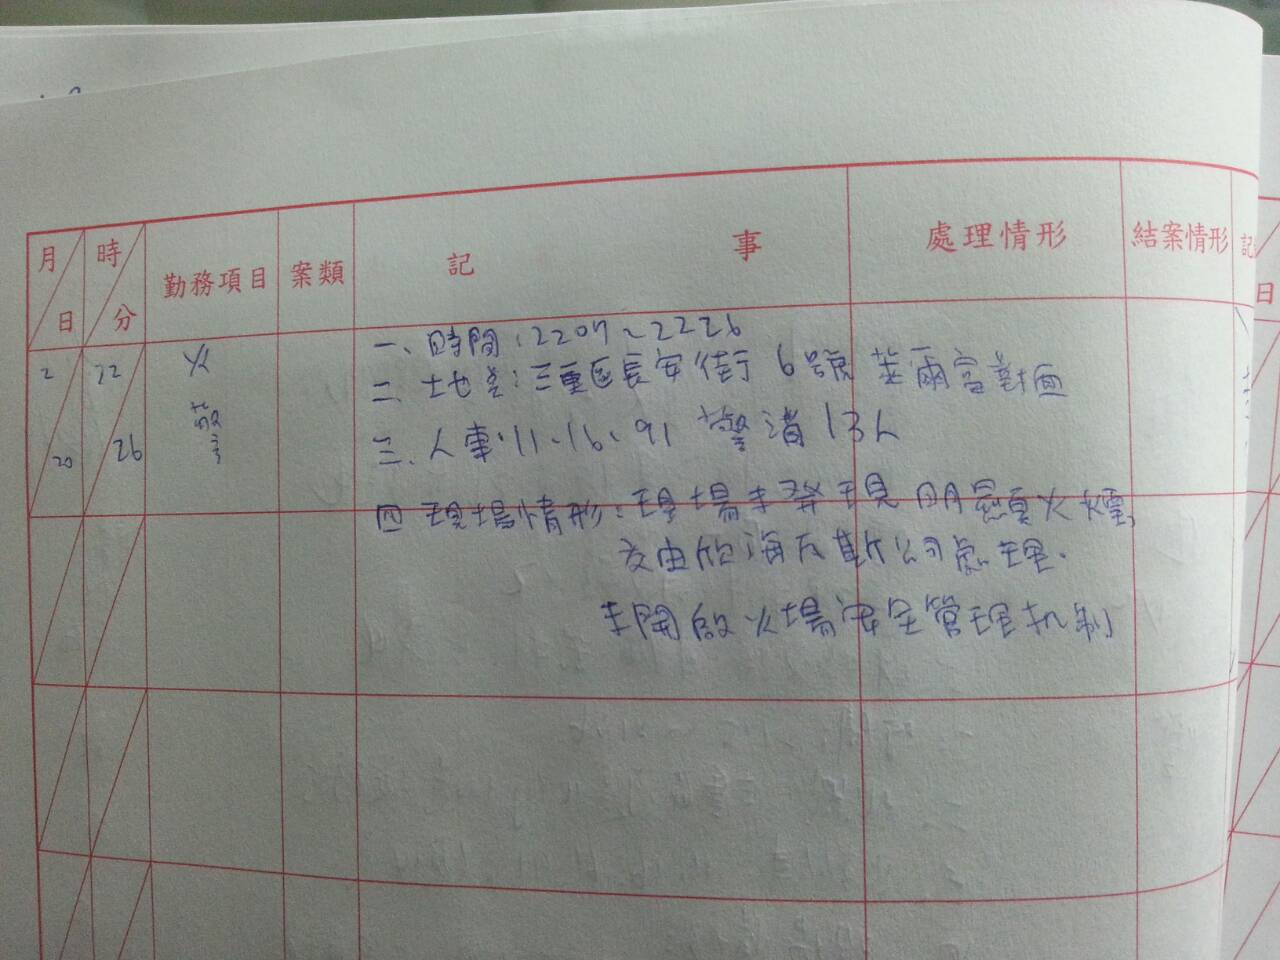 月 日 時 分 勤務項目 案類 記 事 處理情形 結案情形
2 20 22 26 火警
一、時間:2207~2226
二、地點:三重區長安街6號 萊爾富對面
三、人車:11、16、91 警消13人
四 現場情形:現場未發現明顯火煙,
交由欣海瓦斯公司處理.
未開啟火場安全管理机制
日